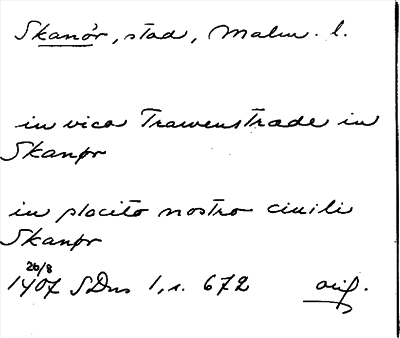 Skanör, stad, Malm. l.
in vico Trawenstrade in
Skanør
in placito nostro ciuili
Skanør
26/8
1407 SDns 1, s. 672 orig.